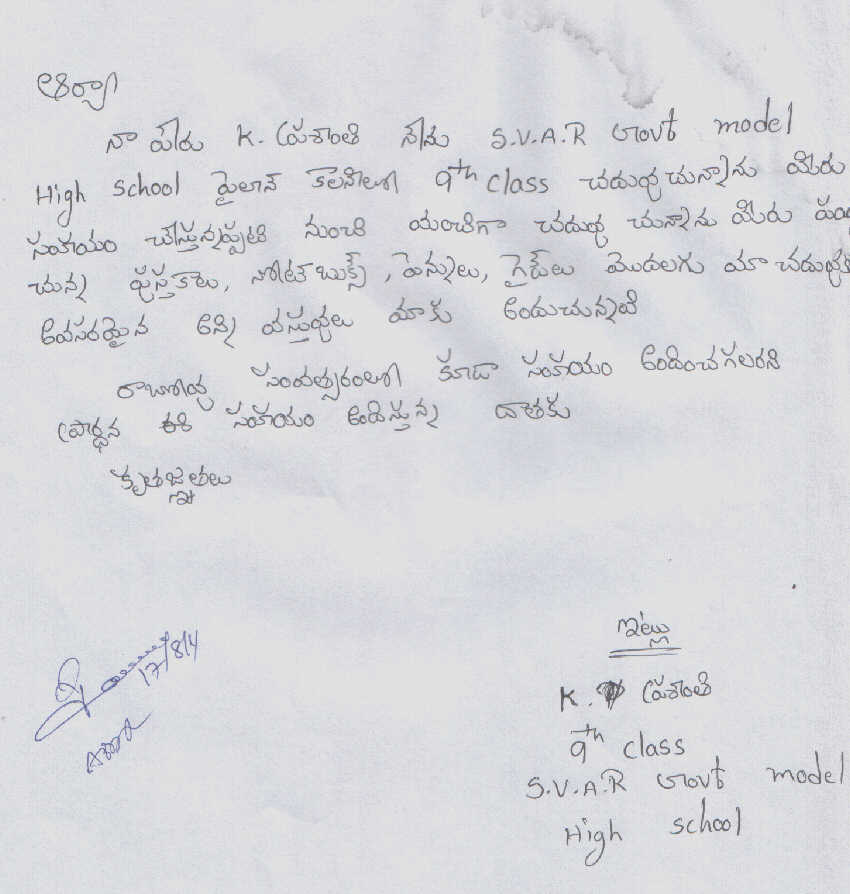 ఆర్యా
నా పేరు K. ప్రశాంతి నేను S.V.A.R Govt model
High school పైలాన్ కాలనిలో 9th class చదువుచున్నాను మీరు
సహాయం చేస్తున్నప్పటి నుంచి మంచిగా చదువు చున్నాను మీరు పంపు
చున్న పుస్తకాలు, నోట్ బుక్స్, పెన్నులు, గైడ్‌లు మొదలగు మా చదువుకు
అవసరమైన అన్ని వస్తువులు మాకు అందుచున్నవి
రాబోయ్యే సంవత్సరంలో కూడా సహాయం అందించగలరని
ప్రార్ధన ఈ సహాయం అందిస్తున్న దాతకు
కృతజ్ఞతలు
17/8/4
ఇట్లు
K. ప్రశాంతి
9th class
S.V.A.R Govt model
High school